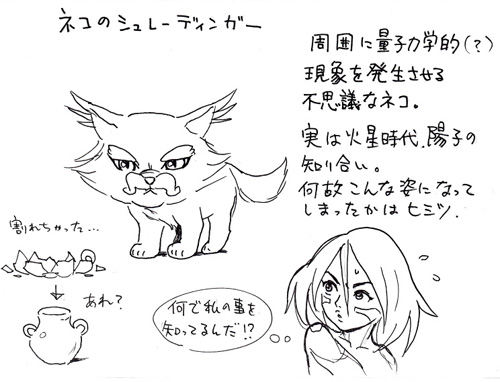 ネコのシュレーディンガー
周囲に量子力学的(?)
現象を発生させる
不思議なネコ。
実は火星時代、陽子の
知り合い。
何故こんな姿になって
しまったかはヒミツ.
割れちゃった…
あれ?
何で私の事を
知ってるんだ!?